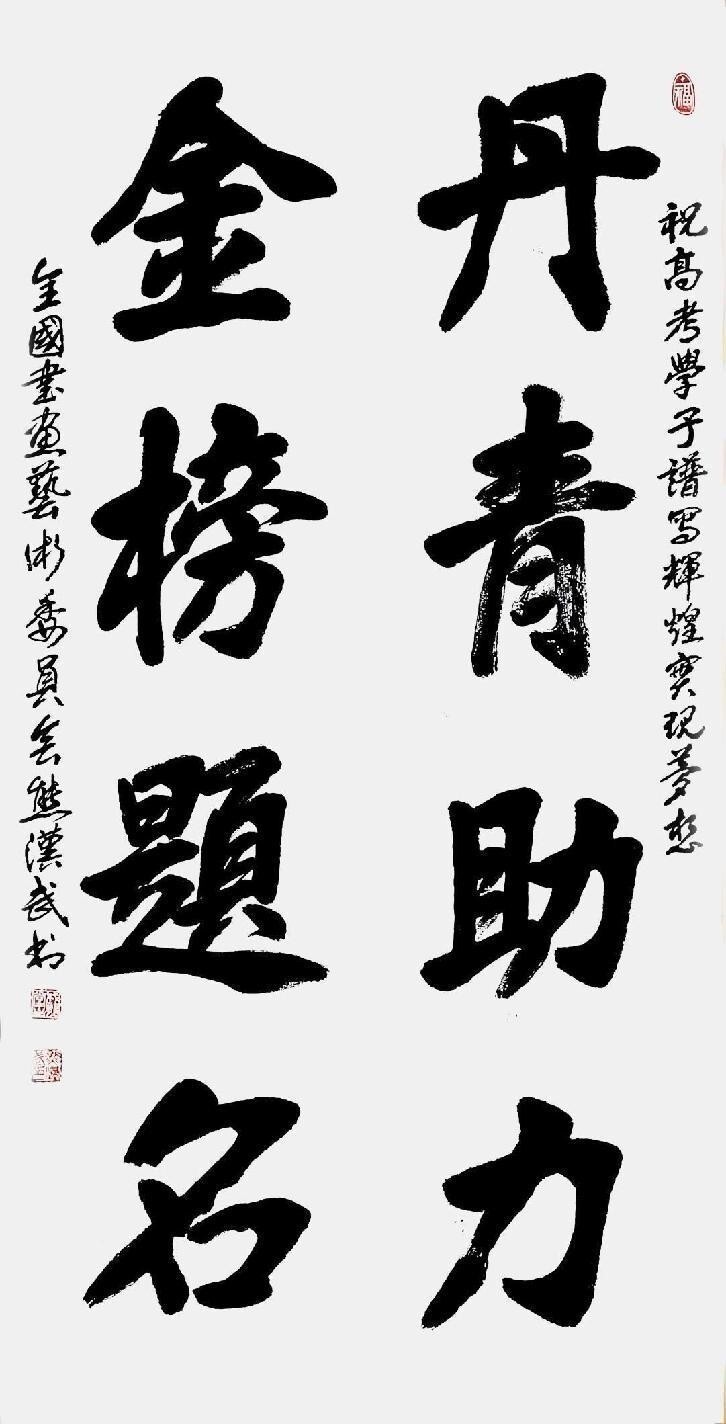 祝高考學子譜寫輝煌實現夢想
丹青助力
金榜題名
全國書画藝術委員會熊漢武書
福